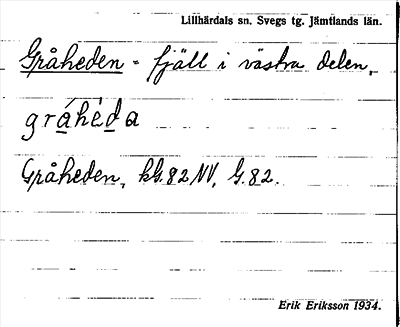 Lillhärdals sn. Svegs tg. Jämtlands län.
Gråheden - fjäll i västra delen,
gráhèda
Gråheden, kb. 82 NV, G. 82.
Erik Eriksson 1934.